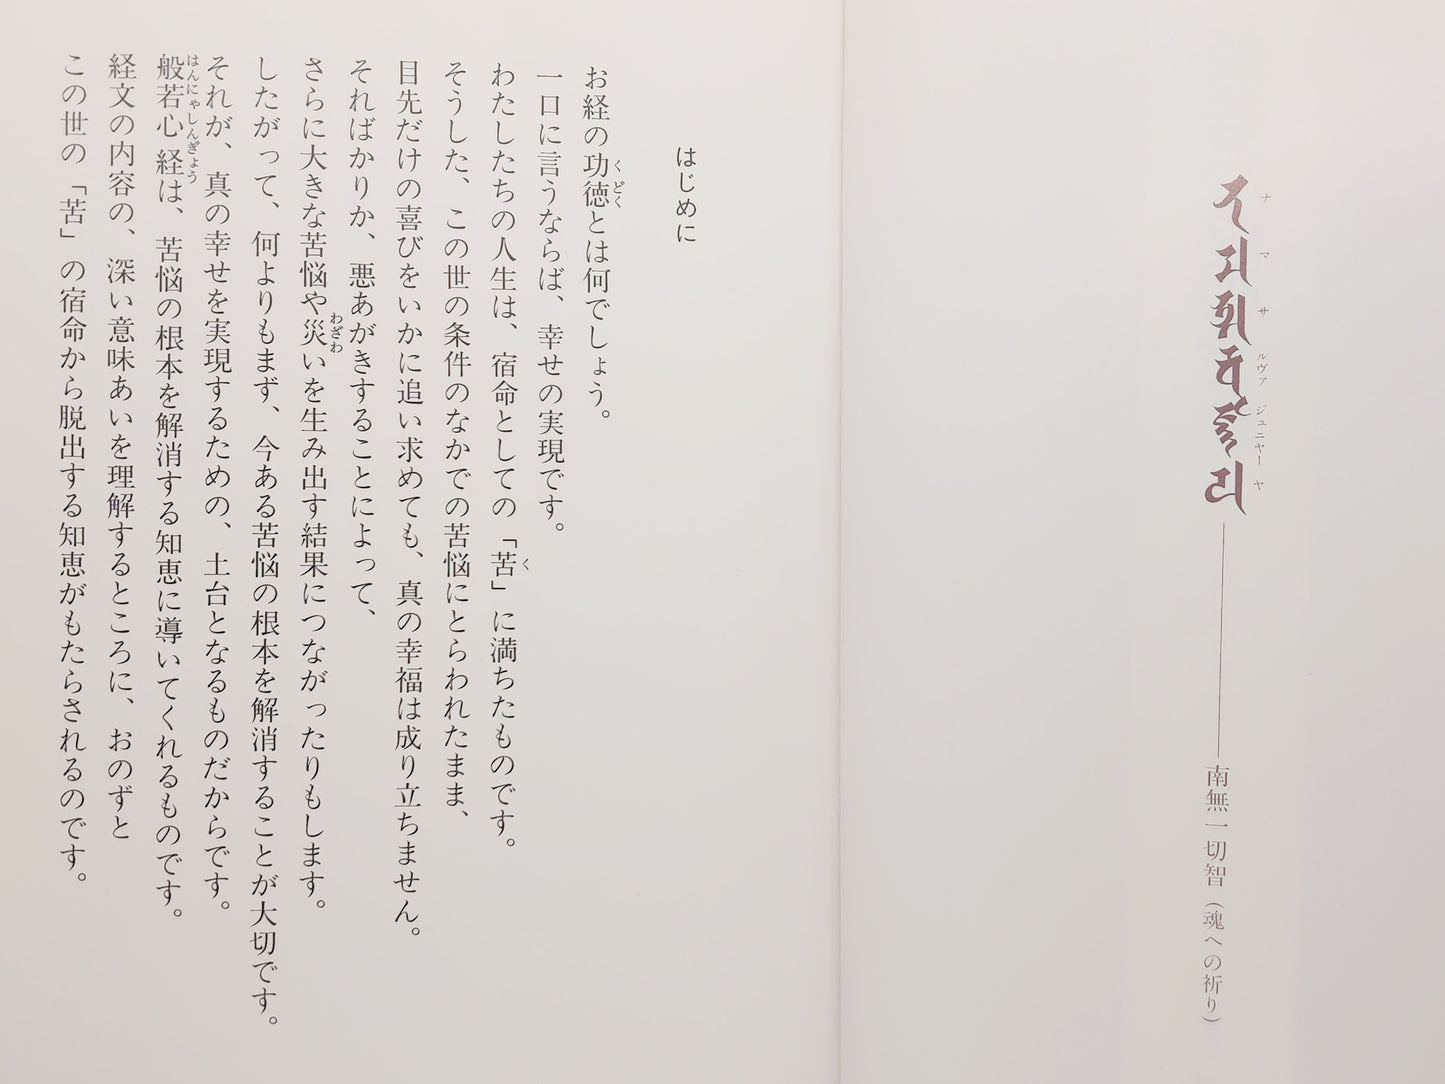 ナマサルヴァジュニャーヤ
南無一切智(魂への祈り)
はじめに
お経の功徳とは何でしょう。
くどく
一口に言うならば、幸せの実現です。
わたしたちの人生は、宿命としての「苦」に満ちたものです。
く
そうした、この世の条件のなかでの苦悩にとらわれたまま、
目先だけの喜びをいかに追い求めても、真の幸福は成り立ちません。
そればかりか、悪あがきすることによって、
さらに大きな苦悩や災いを生み出す結果につながったりもします。
わざわ
したがって、何よりもまず、今ある苦悩の根本を解消することが大切です。
それが、真の幸せを実現するための、土台となるものだからです。
般若心経は、苦悩の根本を解消する知恵に導いてくれるものです。
はんにゃしんぎょう
経文の内容の、深い意味あいを理解するところに、おのずと
この世の「苦」の宿命から脱出する知恵がもたらされるのです。